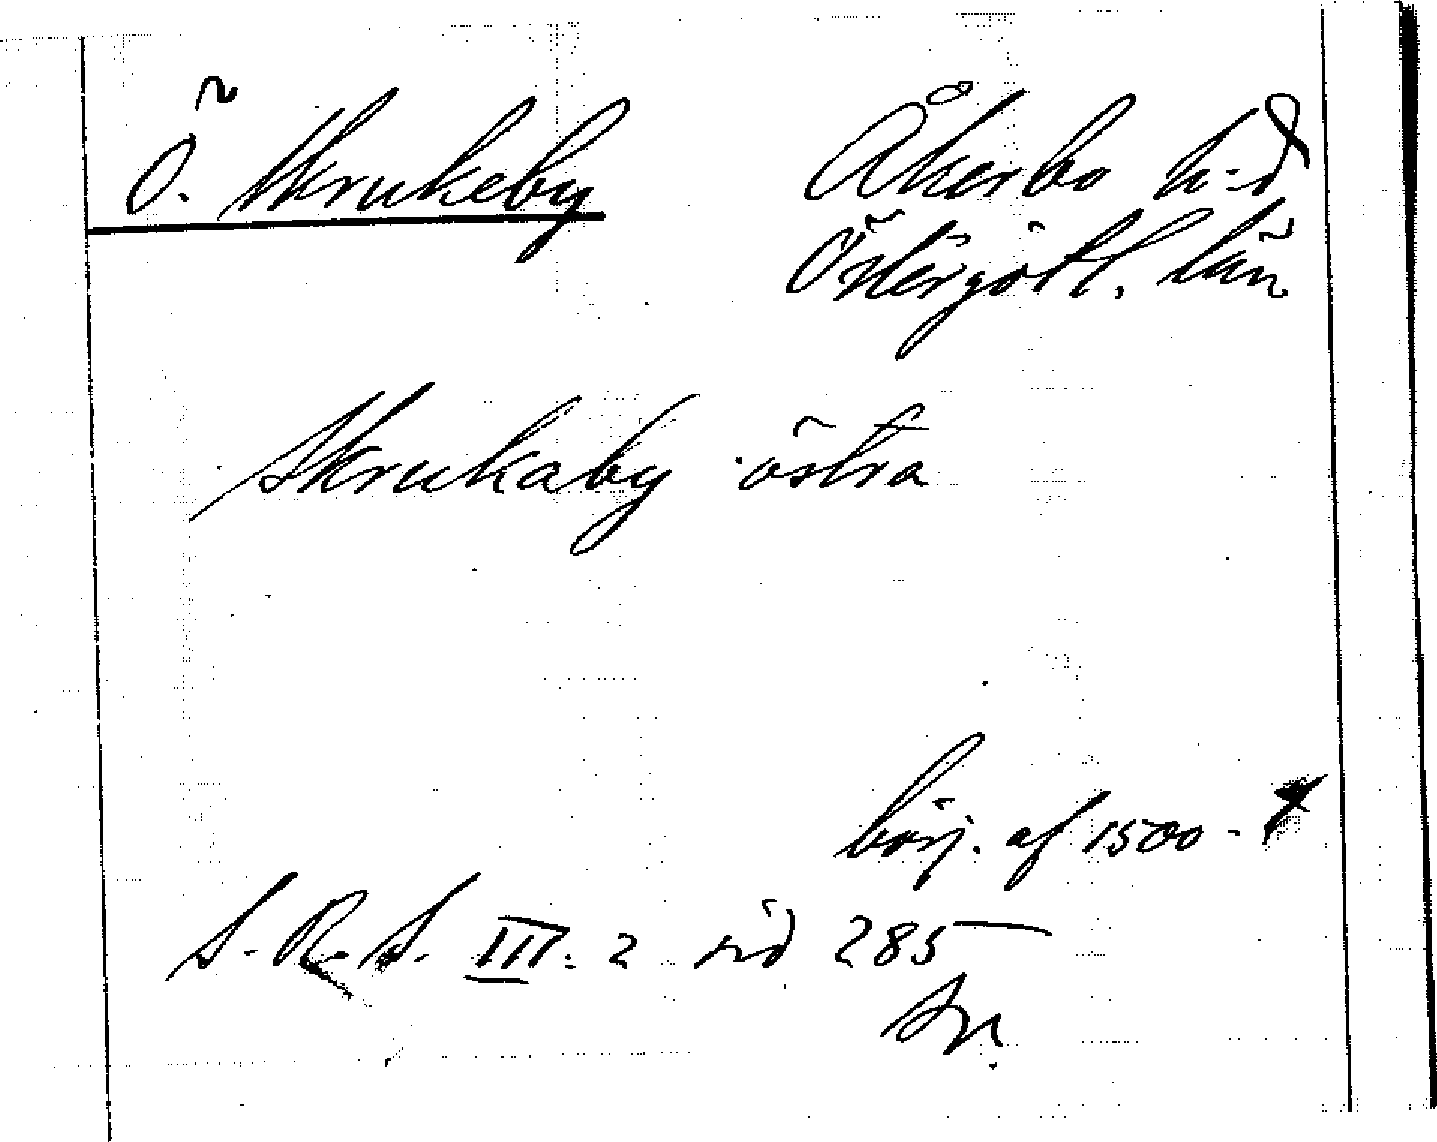 Ö. Skrukeby
Åkerbo h-d
Östergötl. län
Skrukaby östra
börj. af 1500-t
S. R. S. III: 2 sid 285